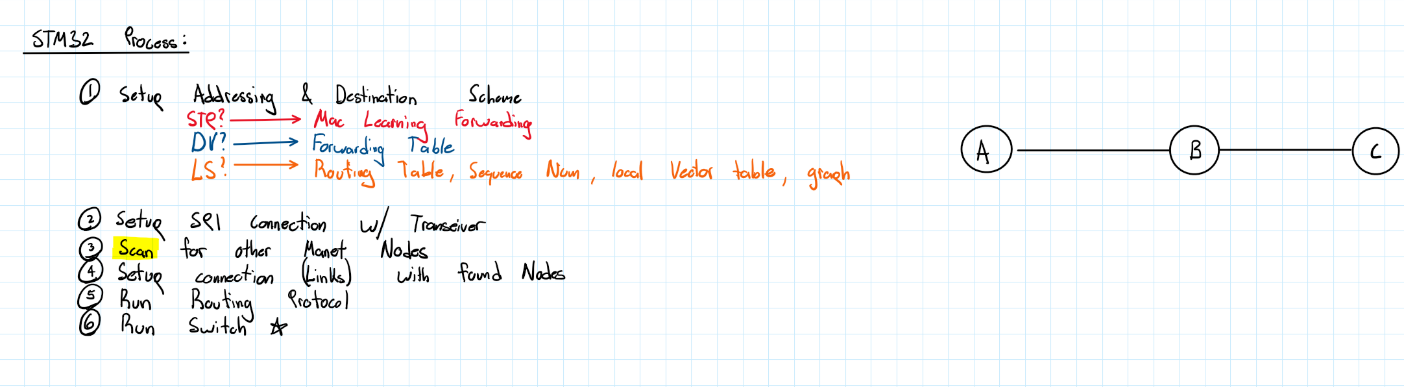 STM32 Process:
① Setup Addressing & Destination Scheme
STP? → Mac Learning Forwarding
DV? → Forwarding Table
LS? → Routing Table, Sequence Num, local Vector table, graph
A B C
② Setup SPI connection w/ Transeiver
③ Scan for other Manet Nodes
④ Setup connection (Links) with found Nodes
⑤ Run Routing Protocol
⑥ Run Switch ☆